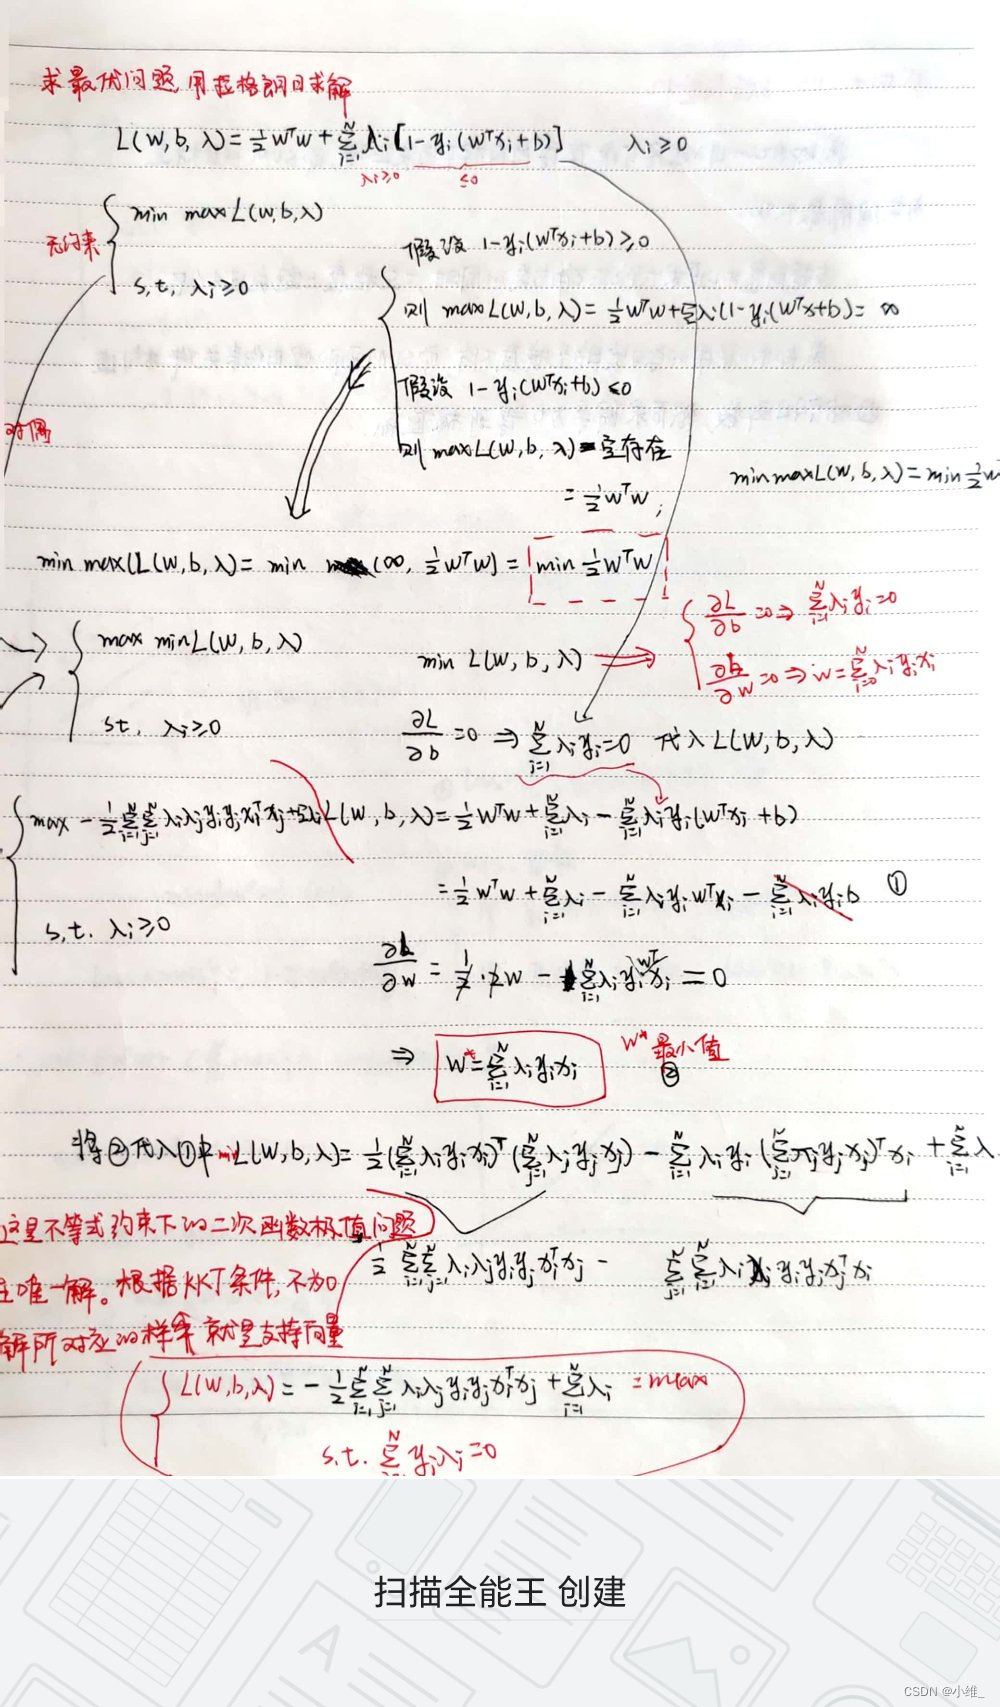 求最优问题,用拉格朗日求解
L(w,b,λ)=½wᵀw+∑ᵢ₌₁ᴺλᵢ[1-yᵢ(wᵀxᵢ+b)] λᵢ≥0
λᵢ≥0 ≤0
无约束
min max L(w,b,λ)
s.t. λᵢ≥0
假设 1-yᵢ(wᵀxᵢ+b)≥0
则 max L(w,b,λ)=½wᵀw+∑λᵢ(1-yᵢ(wᵀx+b)=∞
假设 1-yᵢ(wᵀxᵢ+b)≤0
对偶
则 max L(w,b,λ) 一定存在
min max L(w,b,λ)=min ½w
=½wᵀw;
min max(L(w,b,λ)=min (∞, ½wᵀw)=min ½wᵀw
∂L/∂b=0⇒∑ᵢ₌₁ᴺλᵢyᵢ=0
max min L(w,b,λ)
min L(w,b,λ)
∂L/∂w=0⇒w=∑ᵢ₌₀ᴺλᵢyᵢxᵢ
s.t. λᵢ≥0
∂L/∂b=0⇒∑ᵢ₌₁ᴺλᵢyᵢ=0 代入L(w,b,λ)
max -½∑ᵢ₌₁ᴺ∑ⱼ₌₁ᴺλᵢλⱼyᵢyⱼxᵢᵀxⱼ+∑λᵢ
L(w,b,λ)=½wᵀw+∑ᵢ₌₁ᴺλᵢ-∑ᵢ₌₁ᴺλᵢyᵢ(wᵀxᵢ+b)
=½wᵀw+∑ᵢ₌₁ᴺλᵢ-∑ᵢ₌₁ᴺλᵢyᵢwᵀxᵢ-∑ᵢ₌₁ᴺλᵢyᵢb ①
s.t. λᵢ≥0
∂L/∂w=1/2·2w-∑ᵢ₌₁ᴺλᵢyᵢwᵀxᵢ=0
⇒ w*=∑ᵢ₌₁ᴺλᵢyᵢxᵢ
w*最小值
②
将②代入①中 min L(w,b,λ)=½(∑ᵢ₌₁ᴺλᵢyᵢxᵢ)ᵀ(∑ⱼ₌₁ᴺλⱼyⱼxⱼ)-∑ᵢ₌₁ᴺλᵢyᵢ(∑ⱼ₌₁ᴺλⱼyⱼxⱼ)ᵀxᵢ+∑ᵢ₌₁ᴺλ
这是不等式约束下的二次函数极值问题
½∑ᵢ₌₁ᴺ∑ⱼ₌₁ᴺλᵢλⱼyᵢyⱼxᵢᵀxⱼ - ∑ⱼ₌₁ᴺ∑ᵢ₌₁ᴺλᵢλⱼyᵢyⱼxⱼᵀxᵢ
唯一解。根据KKT条件,不为0
解所对应的样本就是支持向量
L(w,b,λ)=-½∑ᵢ₌₁ᴺ∑ⱼ₌₁ᴺλᵢλⱼyᵢyⱼxᵢᵀxⱼ+∑ᵢ₌₁ᴺλᵢ =max
s.t. ∑ᵢ₌₁ᴺyᵢλᵢ=0
扫描全能王 创建
CSDN @小维_